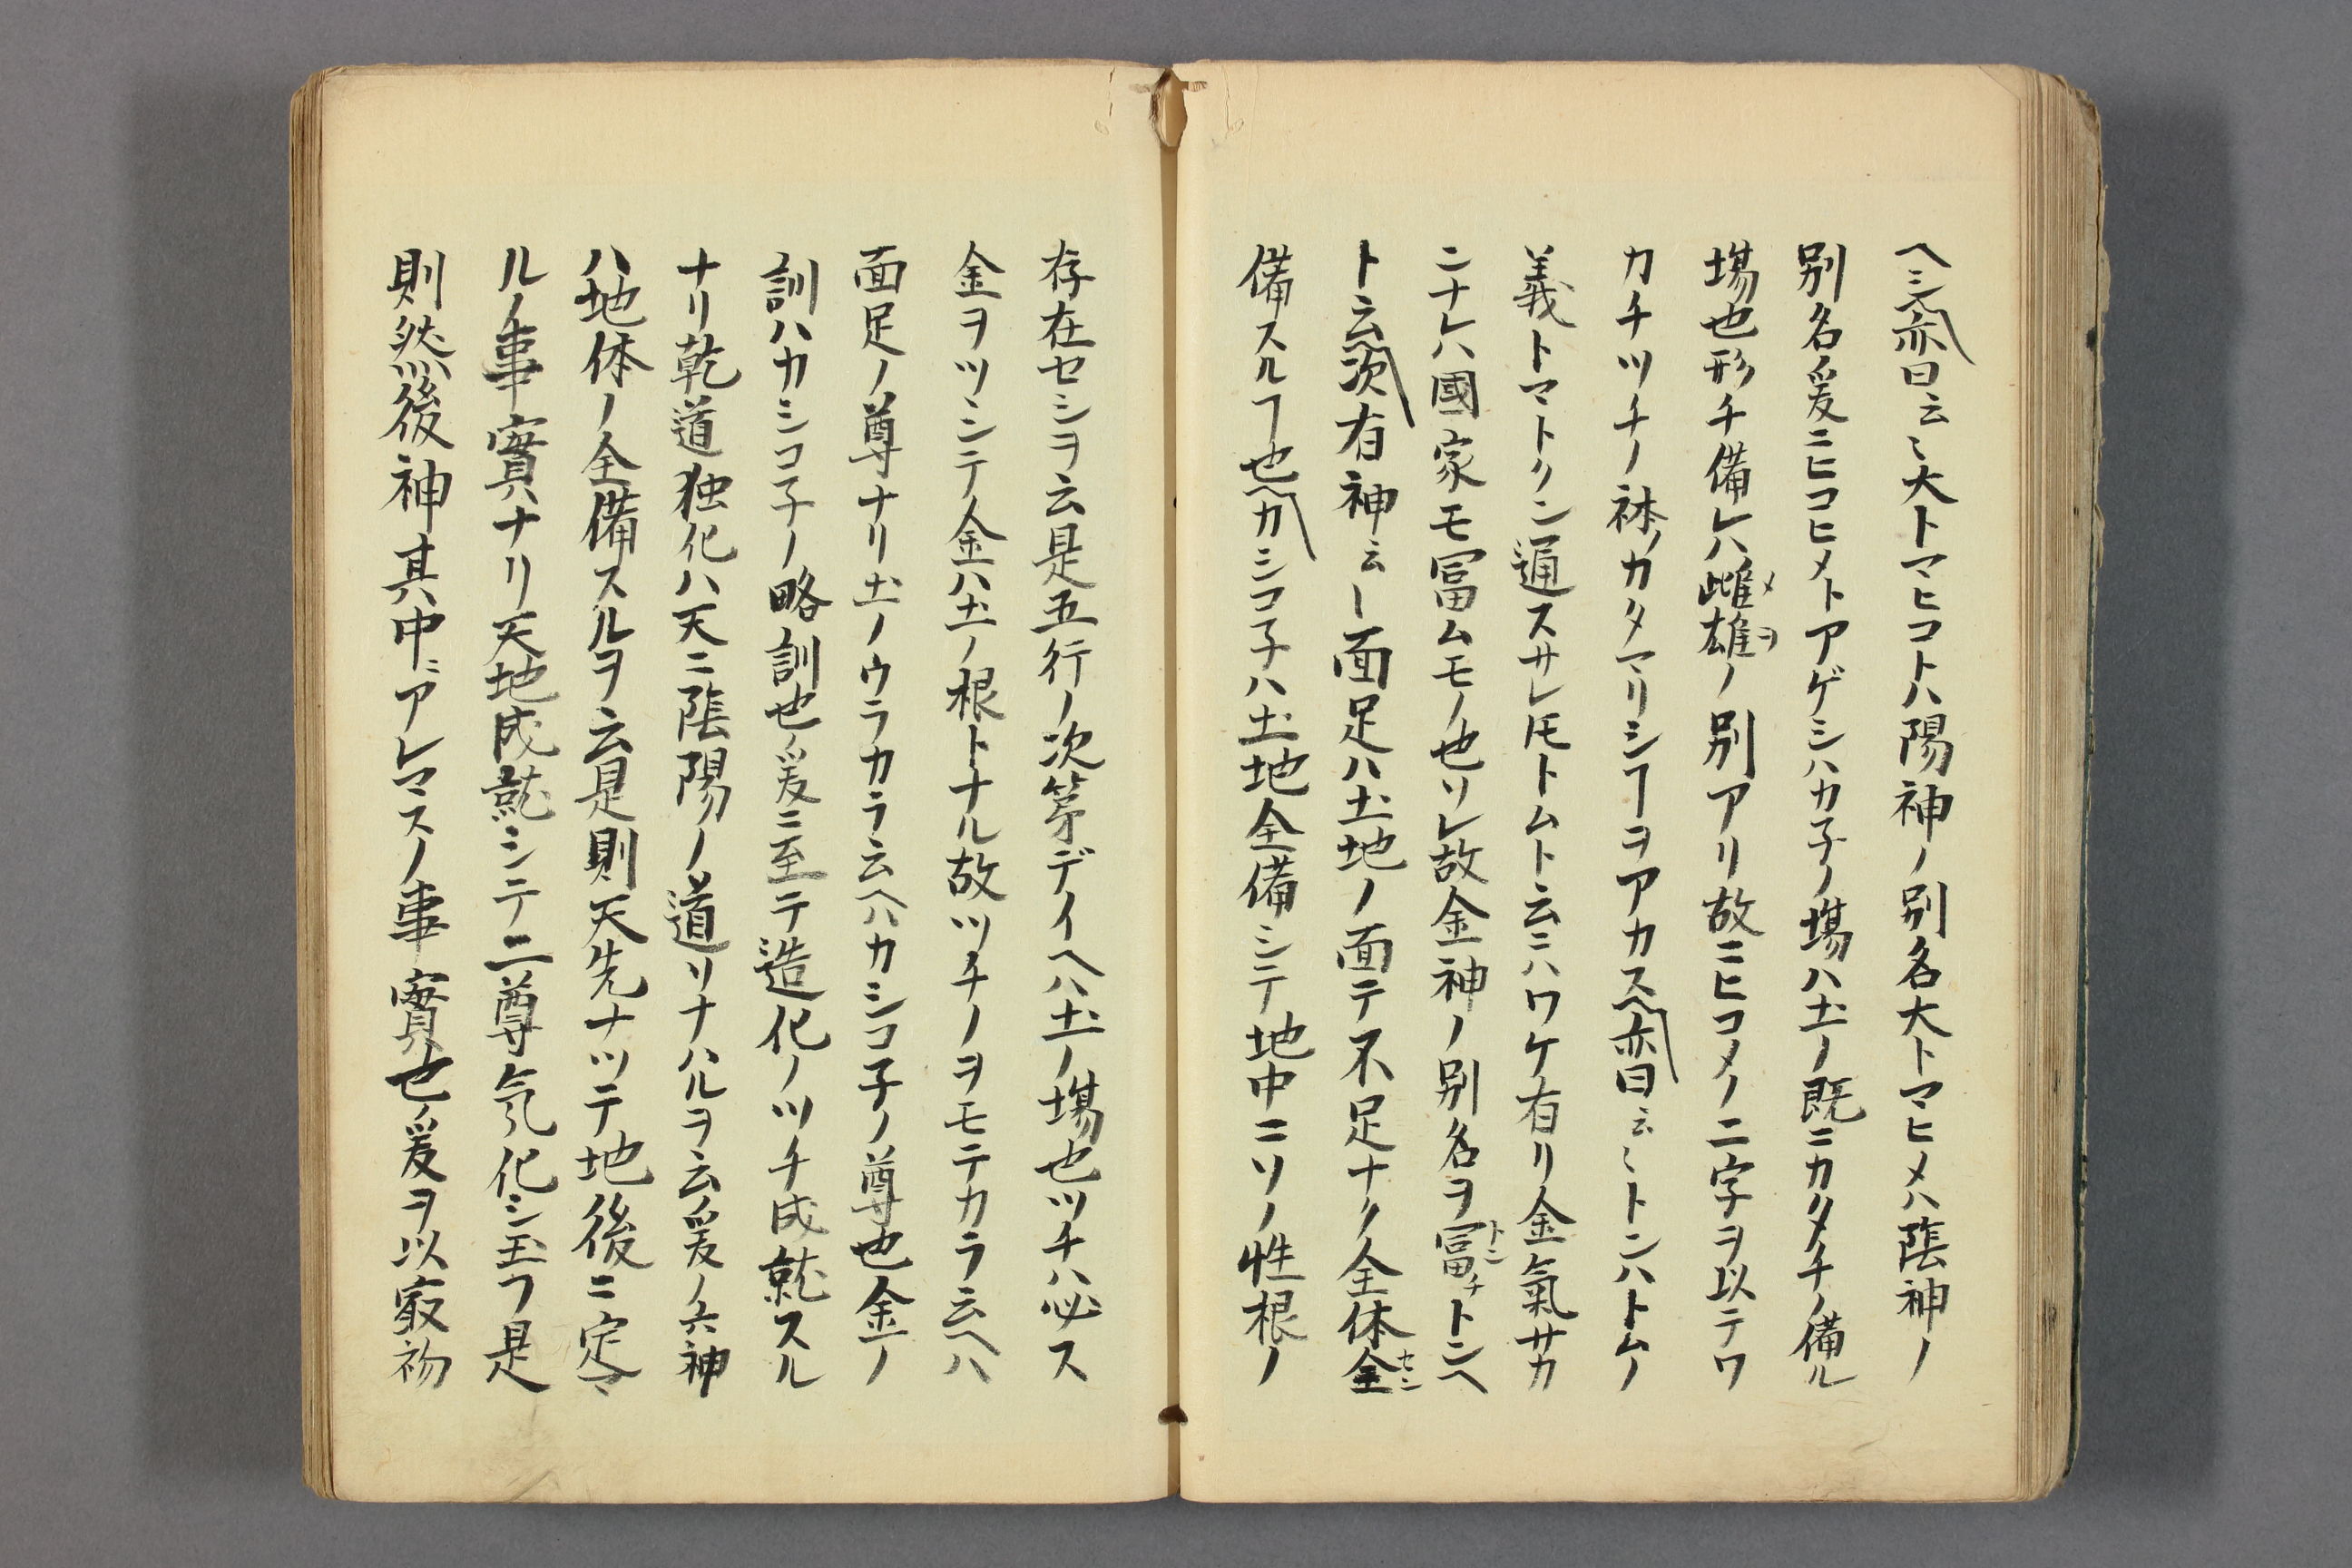 ヘシ〽亦曰云〻大トマヒコトハ陽神ノ別名大トマヒメハ陰神ノ
別名爰ニヒコヒメトアゲシハカ子ノ場ハ土ノ既ニカタチノ備ル
場也形チ備レハ雌雄ノ別アリ故ニヒコメノ二字ヲ以テワ
カチツチノ祑カタマリシヿヲアカス〽亦曰云〻トンハトムノ
義トマトクン通スサレ𪜈トムト云ニハワケ有リ金氣サカ
ンナレハ國家モ冨ムモノ也ソレ故金神ノ別名ヲ冨チトンヘ
ト云〽次有神云ー面足ハ土地ノ面テ不足ナク全体全
備スルヿ也〽カシコ子ハ土地全備シテ地中ニソノ性根ノ
存在セシヲ云是五行ノ次第デイヘハ土ノ場也ツチハ必ス
金ヲツンテ金ハ土ノ根トナル故ツチノヲモテカラ云ヘハ
面足ノ尊ナリ土ノウラカラ云ヘハカシコ子ノ尊也金ノ
訓ハカシコ子ノ略訓也爰ニ至テ造化ノツチ成就スル
ナリ乾道独化ハ天ニ陰陽ノ道リナハルヲ云爰ノ六神
ハ地体ノ全備スルヲ云是則天先ナツテ地後ニ定マ
ルノ事實ナリ天地成就シテ二尊氣化シ玉フ是
則然後神其中ニアレマスノ事實也爰ヲ以㝡初